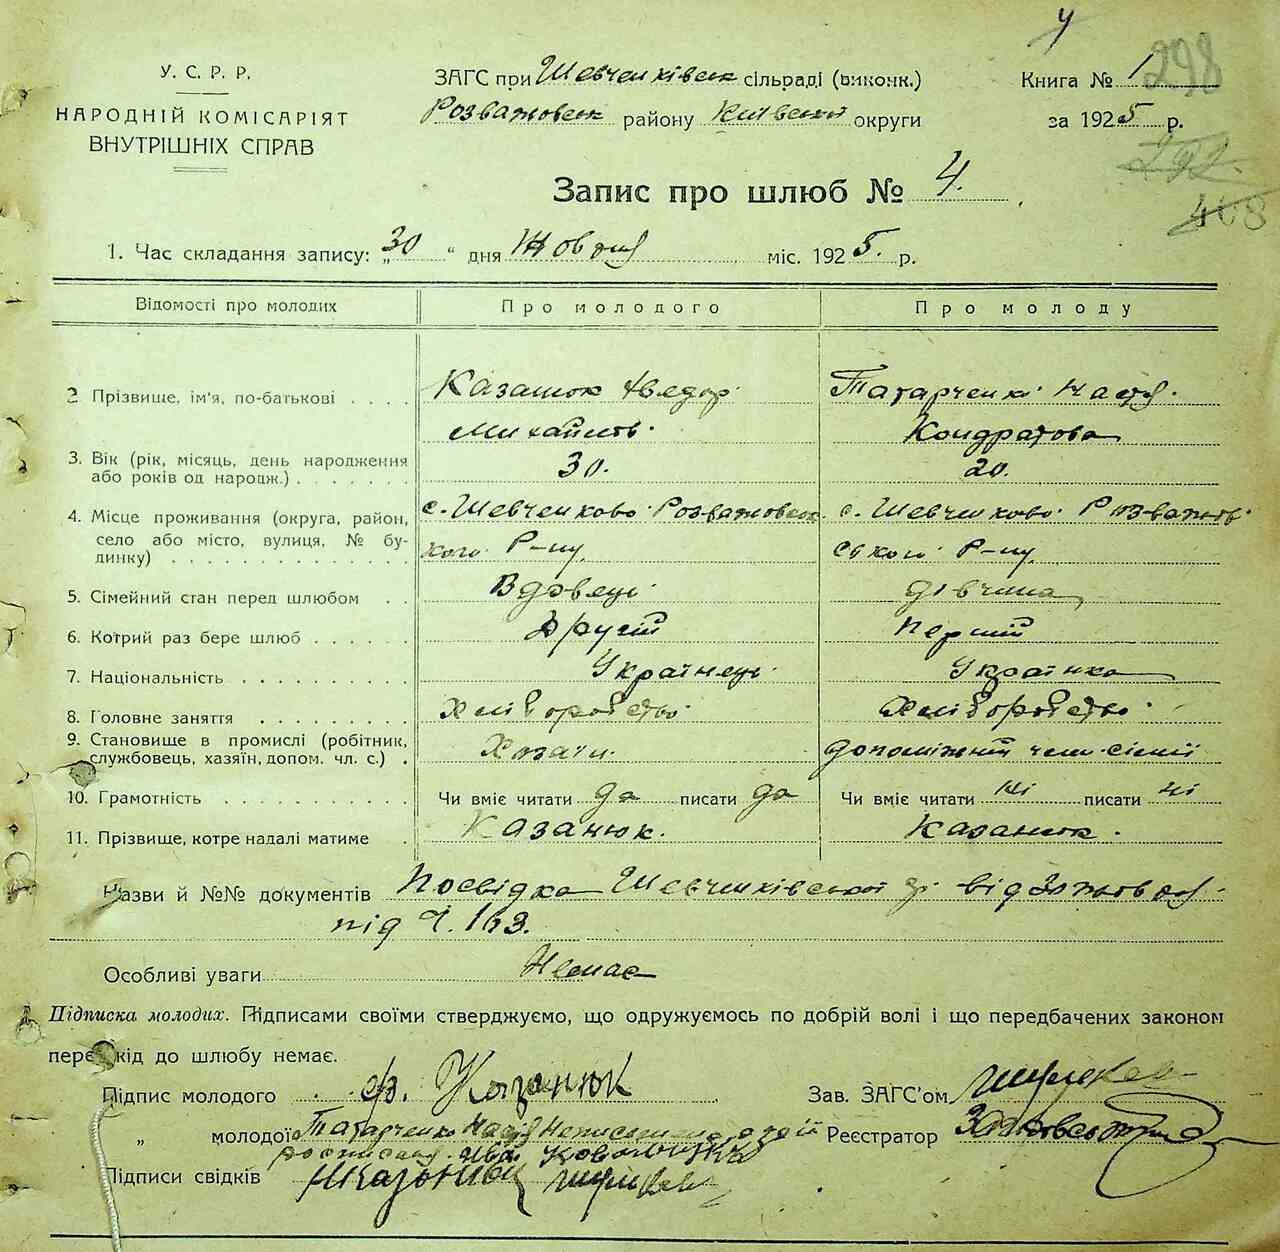 У. С. Р. Р.
НАРОДНІЙ КОМІСАРІЯТ
ВНУТРІШНІХ СПРАВ
ЗАГС при Шевченківск сільраді (виконк.)
Розважовск району Київської округи
Книга № 1
за 1925 р.
298
292
408
Запис про шлюб № 4.
1. Час складання запису: „30" дня Жовтня міс. 1925. р.
Відомості про молодих Про молодого Про молоду
2 Прізвище, ім'я, по-батькові Казанюк Хведор Татарченко Настя
Михайлов. Кондратова
3. Вік (рік, місяць, день народження
або років од народж.) 30. 20.
4. Місце проживання (округа, район, с. Шевченково Розважовск с. Шевченково Розважов
село або місто, вулиця, № бу-
динку) кого Р-ну ського Р-ну
5. Сімейний стан перед шлюбом Вдовець дівчина
6. Котрий раз бере шлюб Другий Перший
7. Національність Українець Українка
8. Головне заняття Хліборобство Хліборобство
9. Становище в промислі (робітник,
службовець, хазяїн, допом. чл. с.) Хозаїн допоміжний член сімії
10. Грамотність Чи вміє читати да писати да Чи вміє читати ні писати ні
11. Прізвище, котре надалі матиме Казанюк. Казанюк.
Назви й №№ документів Посвідка Шевченківської від 30 жовтня
під Ч. 163.
Особливі уваги Немає
Підписка молодих. Підписами своїми стверджуємо, що одружуємось по добрій волі і що передбачених законом
перешкід до шлюбу немає.
Підпис молодого Казанюк Зав. ЗАГС'ом
„ молодої Татарченко Настя Неписьменна а за їй Реєстратор
росписався
Підписи свідків